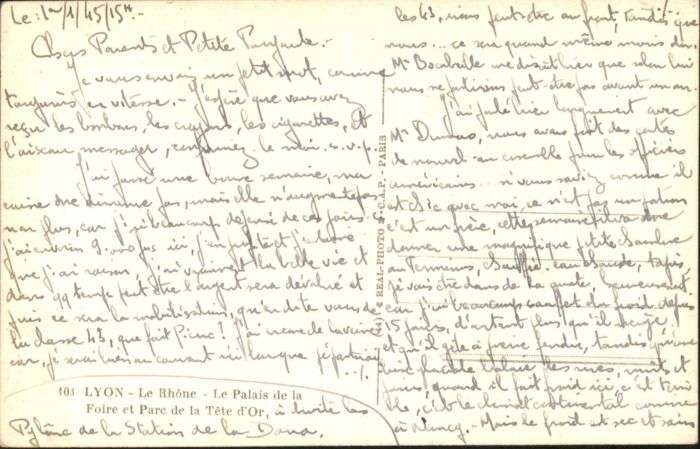 Le : 1er/1/45/15H.-
Chers Parents et Petite
Je vous envoie un petit mot, comme
toujours en vitesse.- J'espère que vous avez
reçu les bonbons, les crayons, les cigarettes, et
l'oiseau messager, confirmez le moi s.v.p.
J'ai passé une bonne semaine, ma
caisse ne diminue pas, mais elle n'augmente pas
non plus, car j'ai beaucoup dépensé ces jours ci
j'ai environ 9.000 frs ici, j'en profite et j'
que j'ai raison, j'ai vraiment la belle vie et
dans qq temps peut être l'argent sera dévalué et
puis ce sera la mobilisation, qu'en dite vous de
la classe 43, que fait Pierre ? j'ai
car, je serai bien au courant ici lorsque
./.
104 LYON - Le Rhône - Le Palais de la
Foire et Parc de la Tête d'Or, à droite les
Pylône de la Station de la Doua.
(44) REAL-PHOTO C.A.P. - PARIS
les 43, nous peut être au front, tandis que
nous... ce sera quand même moins
Mr me disait hier que selon lui
nous ne partirons peut être pas avant un an
J'ai parlé hier longuement avec
Mr Dumas, nous avons fait des cartes
de nouvel-an ensemble pour les officiers
américains... si vous saviez comme il
est chic avec moi, ce n'est pas un patron
c'est un père, cette semaine il va me
donner une magnifique petite chambre
au Terminus, chauffée, eau chaude, tapis,
je vais être dans de la ouate, heureusement
car j'ai beaucoup souffert du froid depuis
15 jours, d'autant plus qu'il
et qu'il gèle à pierre fendre, tandis qu'
des rues, nuits et
jours, quand il fait froid ici, c'est
, c'est le climat continental comme
à Nancy.- Mais le froid est sec et sain